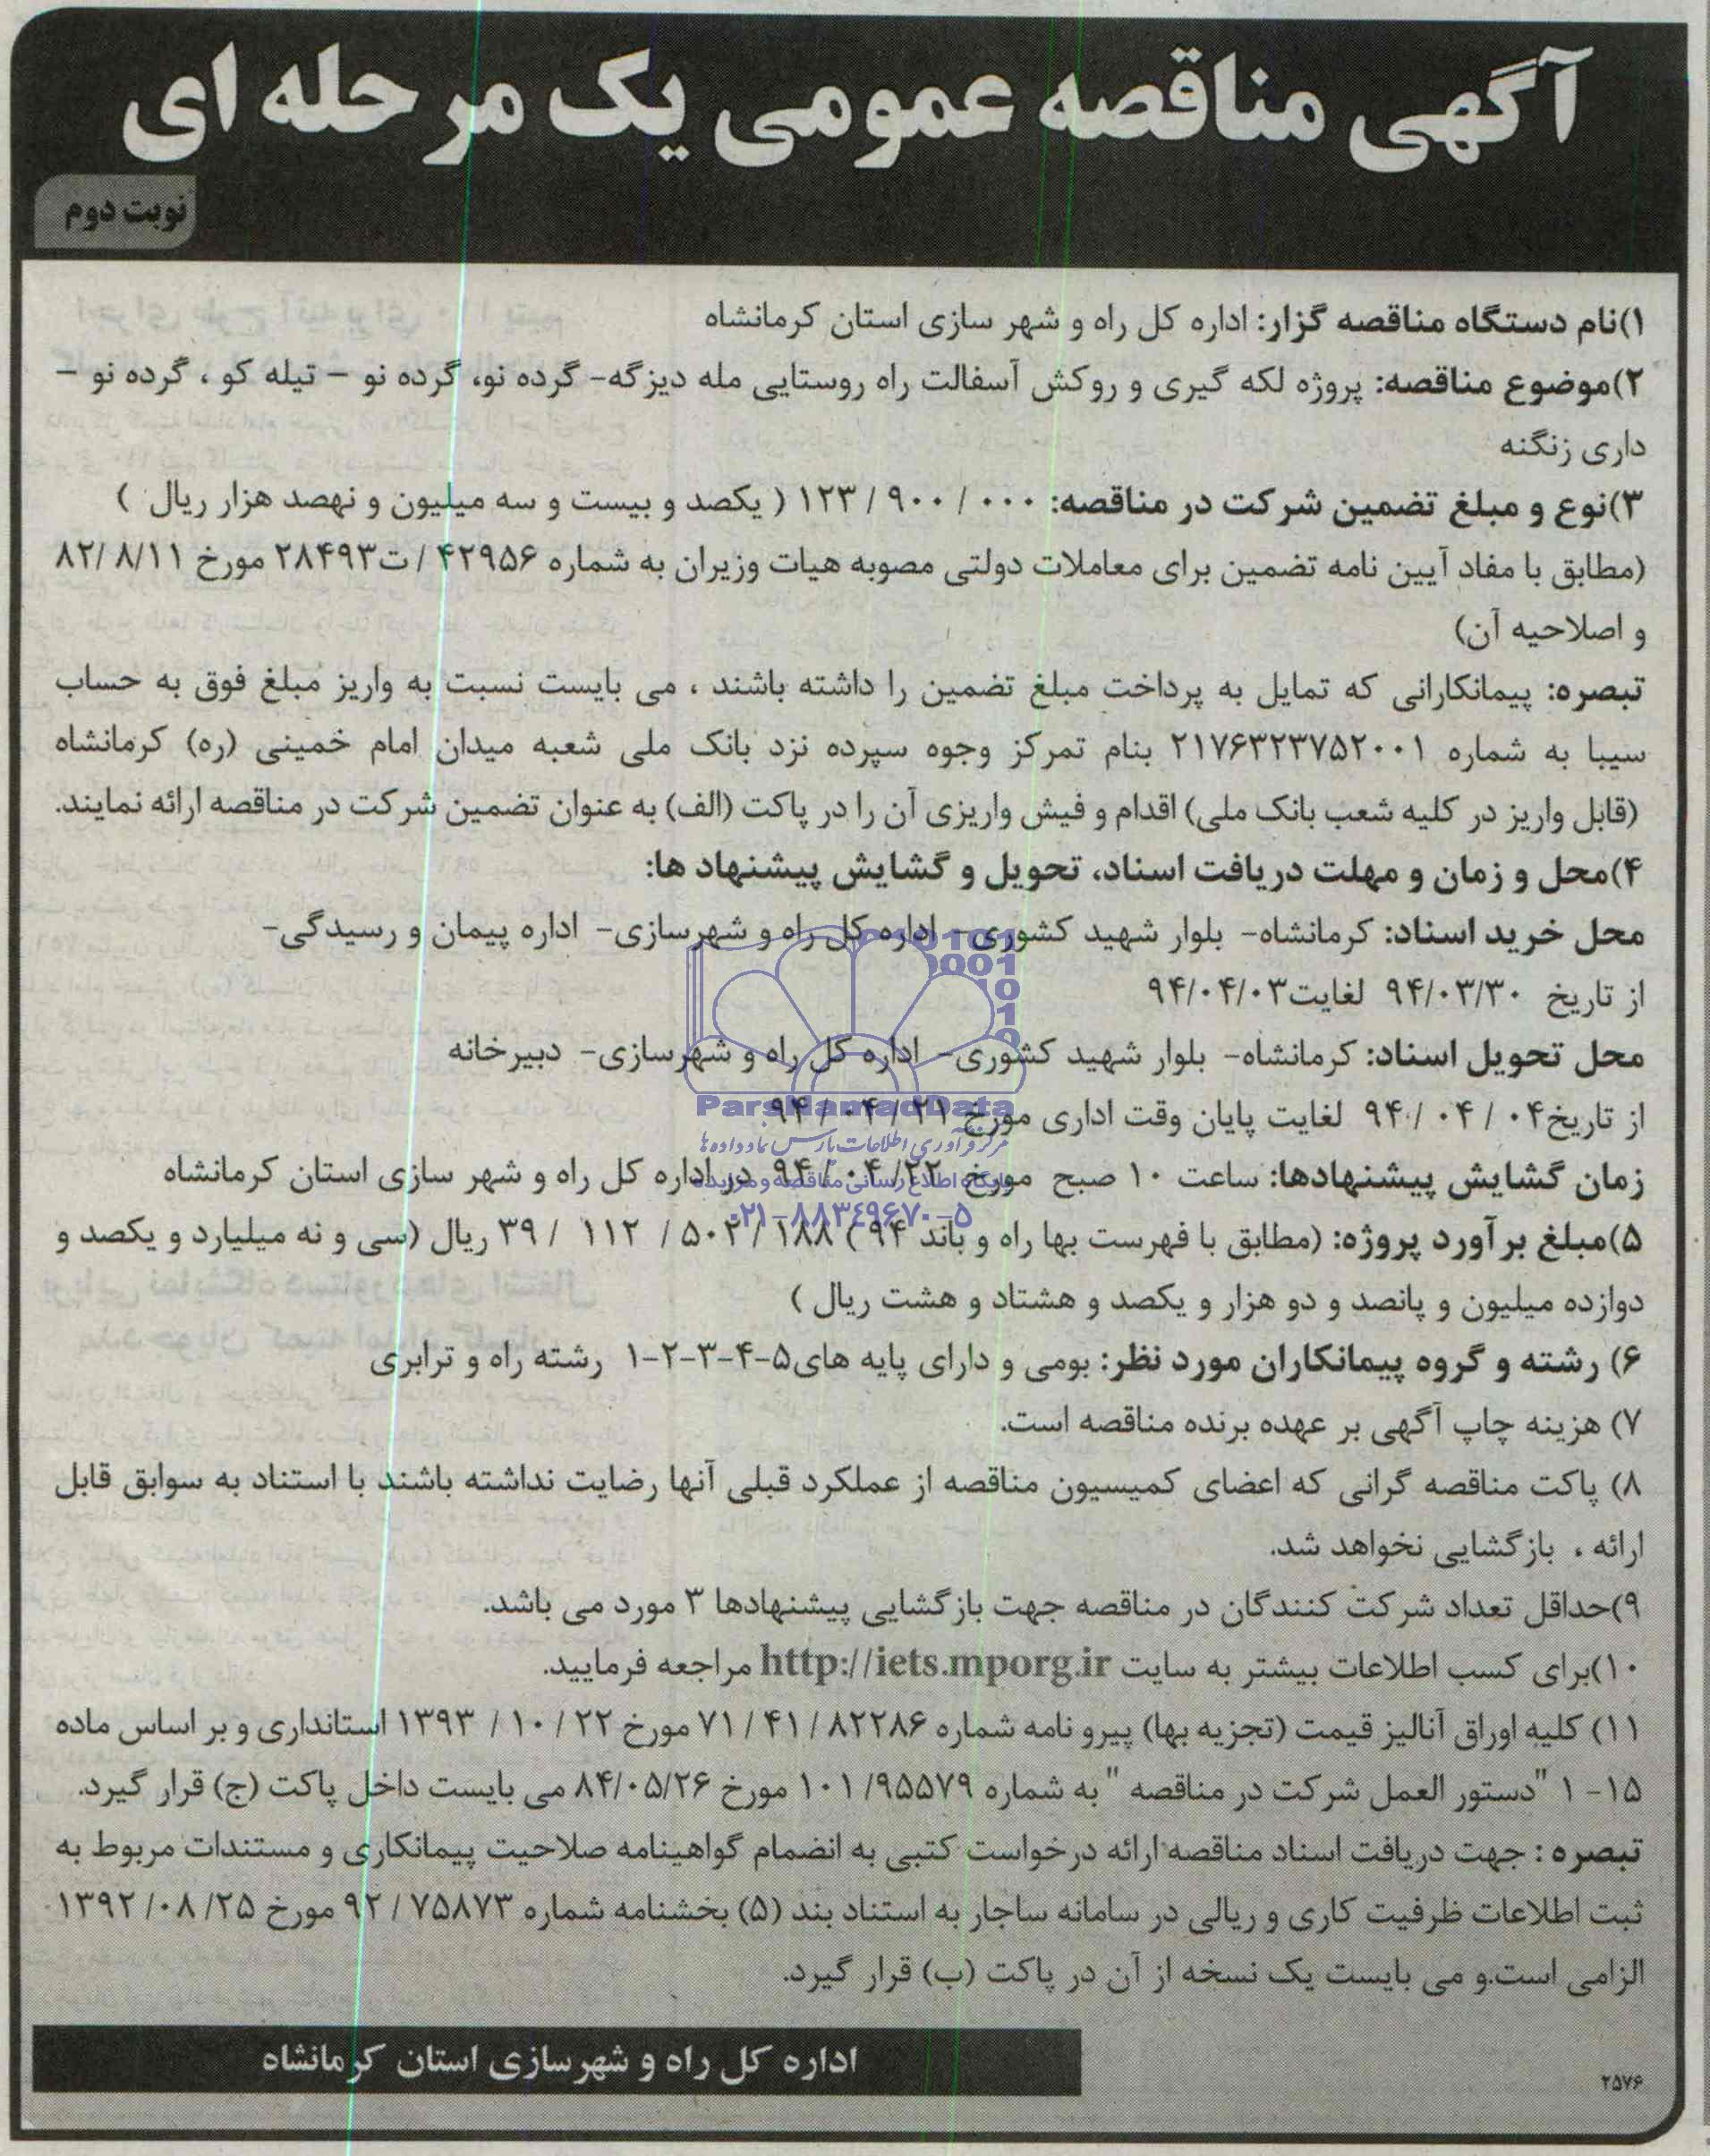 آگهی مناقصه عمومی یک مرحله ای
نوبت دوم
۱)نام دستگاه مناقصه گزار: اداره کل راه و شهر سازی استان کرمانشاه
۲)موضوع مناقصه: پروژه لکه گیری و روکش آسفالت راه روستایی مله دیزگه- گرده نو، گرده نو – تیله کو ، گرده نو –
داری زنگنه
۳)نوع و مبلغ تضمین شرکت در مناقصه: ۰۰۰ / ۹۰۰ / ۱۲۳ ( یکصد و بیست و سه میلیون و نهصد هزار ریال )
(مطابق با مفاد آیین نامه تضمین برای معاملات دولتی مصوبه هیات وزیران به شماره ۴۲۹۵۶ / ت۲۸۴۹۳ مورخ ۸۲/ ۸/۱۱
و اصلاحیه آن)
تبصره: پیمانکارانی که تمایل به پرداخت مبلغ تضمین را داشته باشند ، می بایست نسبت به واریز مبلغ فوق به حساب
سیبا به شماره ۲۱۷۶۳۲۳۷۵۲۰۰۱ بنام تمرکز وجوه سپرده نزد بانک ملی شعبه میدان امام خمینی (ره) کرمانشاه
(قابل واریز در کلیه شعب بانک ملی) اقدام و فیش واریزی آن را در پاکت (الف) به عنوان تضمین شرکت در مناقصه ارائه نمایند.
۴)محل و زمان و مهلت دریافت اسناد، تحویل و گشایش پیشنهاد ها:
محل خرید اسناد: کرمانشاه- بلوار شهید کشوری- اداره کل راه و شهرسازی- اداره پیمان و رسیدگی-
از تاریخ ۹۴/۰۳/۳۰ لغایت۹۴/۰۴/۰۳
محل تحویل اسناد: کرمانشاه- بلوار شهید کشوری- اداره کل راه و شهرسازی- دبیرخانه
ParsNamadData
از تاریخ۰۴ / ۰۴ / ۹۴ لغایت پایان وقت اداری مورخ ۲۱ / ۰۴ / ۹۴
مرکز فرآوری اطلاعات پارس نماد داده ها
زمان گشایش پیشنهادها: ساعت ۱۰ صبح مورخ ۲۲/ ۰۴ / ۹۴ در اداره کل راه و شهر سازی استان کرمانشاه
پایگاه اطلاع رسانی مناقصه و مزایده
۰۲۱-۸۸۳۴۹۶۷۰-۵
۵)مبلغ برآورد پروژه: (مطابق با فهرست بها راه و باند ۹۴ ) ۱۸۸ / ۵۰۲ / ۱۱۲ / ۳۹ ریال (سی و نه میلیارد و یکصد و
دوازده میلیون و پانصد و دو هزار و یکصد و هشتاد و هشت ریال )
۶) رشته و گروه پیمانکاران مورد نظر: بومی و دارای پایه های۵-۴-۳-۲-۱ رشته راه و ترابری
۷) هزینه چاپ آگهی بر عهده برنده مناقصه است.
۸) پاکت مناقصه گرانی که اعضای کمیسیون مناقصه از عملکرد قبلی آنها رضایت نداشته باشند با استناد به سوابق قابل
ارائه ، بازگشایی نخواهد شد.
۹)حداقل تعداد شرکت کنندگان در مناقصه جهت بازگشایی پیشنهادها ۳ مورد می باشد.
۱۰)برای کسب اطلاعات بیشتر به سایت http://iets.mporg.ir مراجعه فرمایید.
۱۱) کلیه اوراق آنالیز قیمت (تجزیه بها) پیرو نامه شماره ۸۲۲۸۶ / ۴۱ / ۷۱ مورخ ۲۲ / ۱۰ / ۱۳۹۳ استانداری و بر اساس ماده
۱۵- ۱ "دستور العمل شرکت در مناقصه " به شماره ۹۵۵۷۹/ ۱۰۱ مورخ ۸۴/۰۵/۲۶ می بایست داخل پاکت (ج) قرار گیرد.
تبصره : جهت دریافت اسناد مناقصه ارائه درخواست کتبی به انضمام گواهینامه صلاحیت پیمانکاری و مستندات مربوط به
ثبت اطلاعات ظرفیت کاری و ریالی در سامانه ساجار به استناد بند (۵) بخشنامه شماره ۷۵۸۷۳ / ۹۲ مورخ ۲۵/ ۰۸/ ۱۳۹۲
الزامی است.و می بایست یک نسخه از آن در پاکت (ب) قرار گیرد.
اداره کل راه و شهرسازی استان کرمانشاه
۲۵۷۶